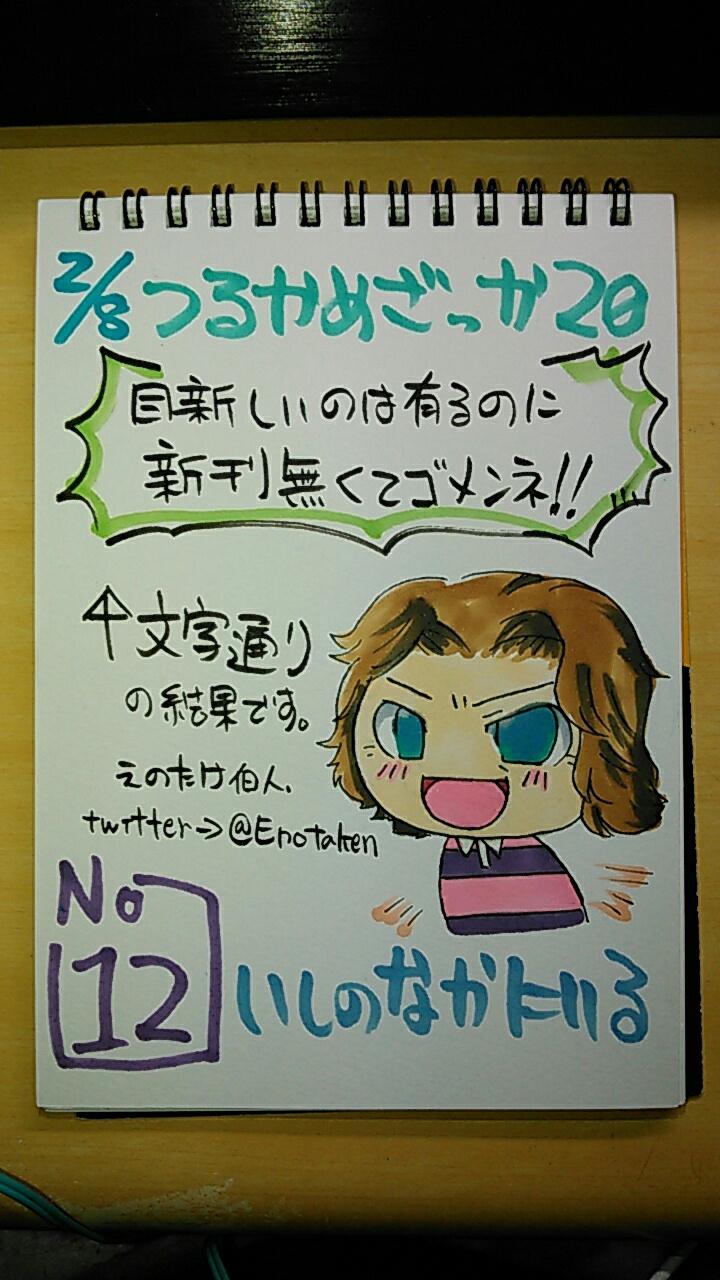 2/8 つるかめざっか20
目新しいのは有るのに
新刊無くてゴメンネ!!
↑文字通り
の結果です。
えのたけ伯人.
twitter→@Enotaken
No
12
いしのなかにいる